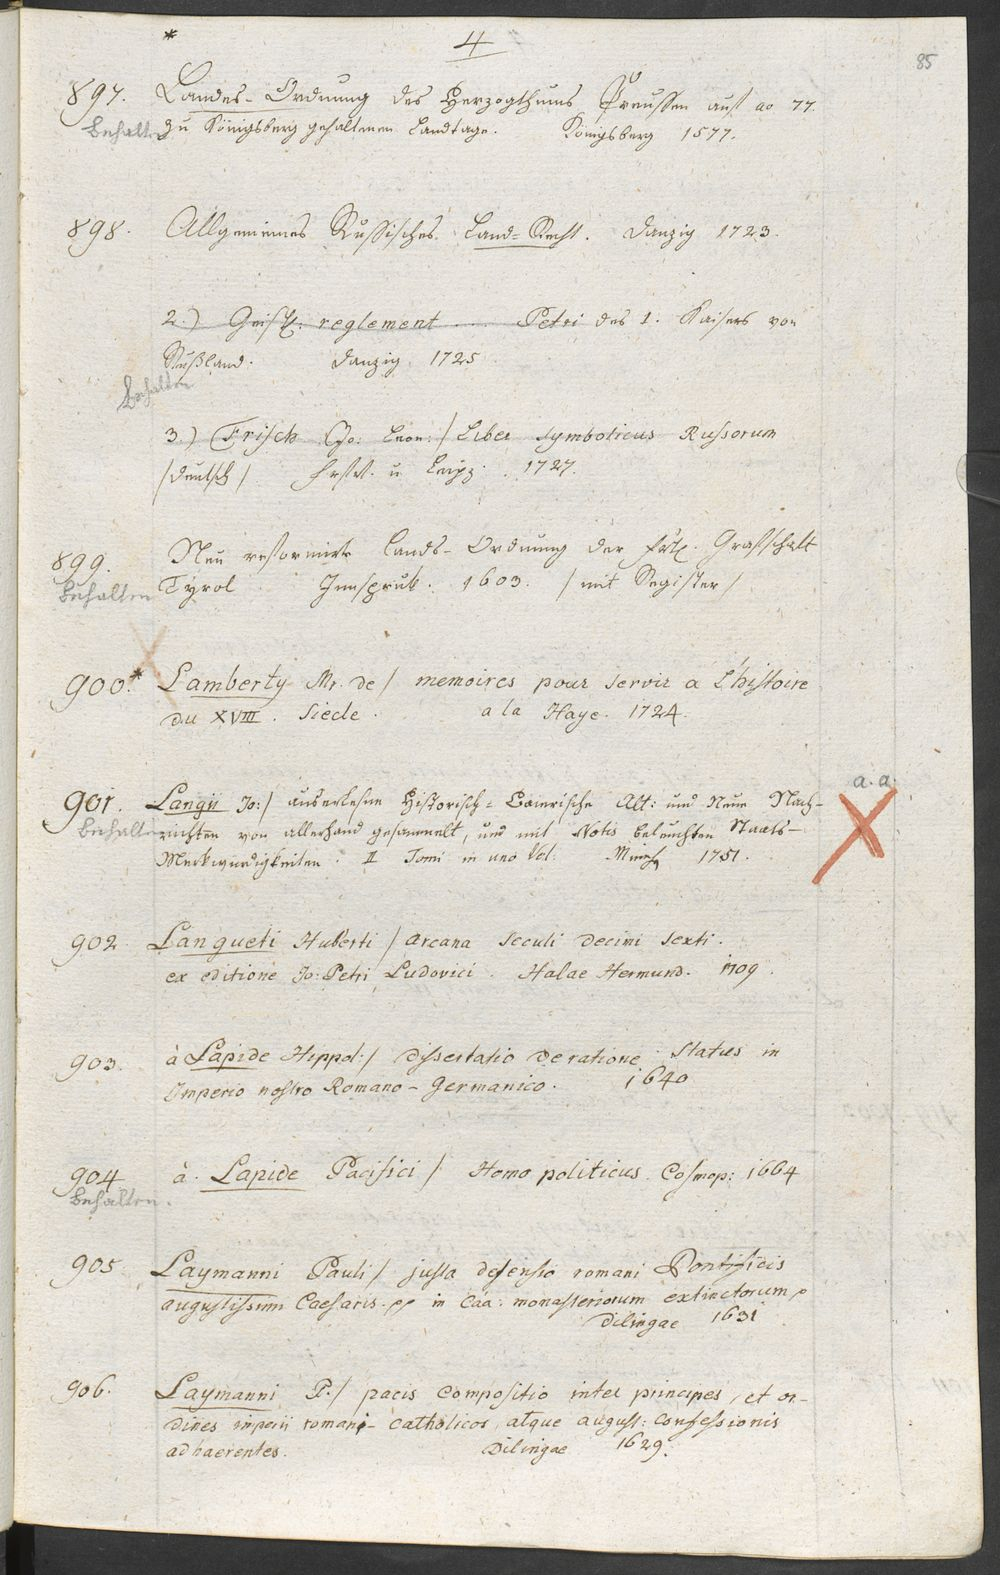 *
4
85
897. Landes-Ordnung des Herzogthums Preussen auß ao 77
behalten zu Königsberg gehaltenen Landtage. Königsberg 1577.
898. Allgemeines Russisches Land-Recht. Danzig 1723.
2.) Geistl: reglement ... Petri des 1. Kaisers von
Rußland. Danzig 1725
behalten
3.) Frisch Jo: Leon: / Liber symbolicus Russorum
/deutsch/ Frft. u Leipz. 1727.
899. Neu reformirte Lands-Ordnung der frtl. Grafschaft
behalten Tyrol Innsprukh. 1603. / mit Register /
900.* Lamberty Mr. de / memoires pour servir a l'histoire
du XVIII. Siecle. a la Haye. 1724.
a. a.
901. Langii Jo: / auserlesene Historisch-Bairische Alt: und Neue Nach-
behalten richten von allerhand gesammelt, und mit Notis beleuchten Staats-
Merkwürdigkeiten. II Tomi in uno Vol. Münch 1751.
902. Langueti Huberti / arcana Seculi decimi sexti.
ex editione Jo: Petri Ludovici. Halae Hermund. 1709.
903. à Lapide Hippol: / dissertatio de ratione Status in
Imperio nostro Romano-Germanico. 1640
904 à Lapide Pacifici / Homo politicus. Cosmop: 1664
behalten.
905 Laymanni Pauli / justa defensio romani Pontificis
augustissimi Caesaris. pp in Caa: monasteriorum extinctorum p
Dilingae 1631
906. Laymanni P. / pacis compositio inter principes, et or-
dines imperii romani- catholicos, atque august: confessionis
adhaerentes. Dilingae 1629.